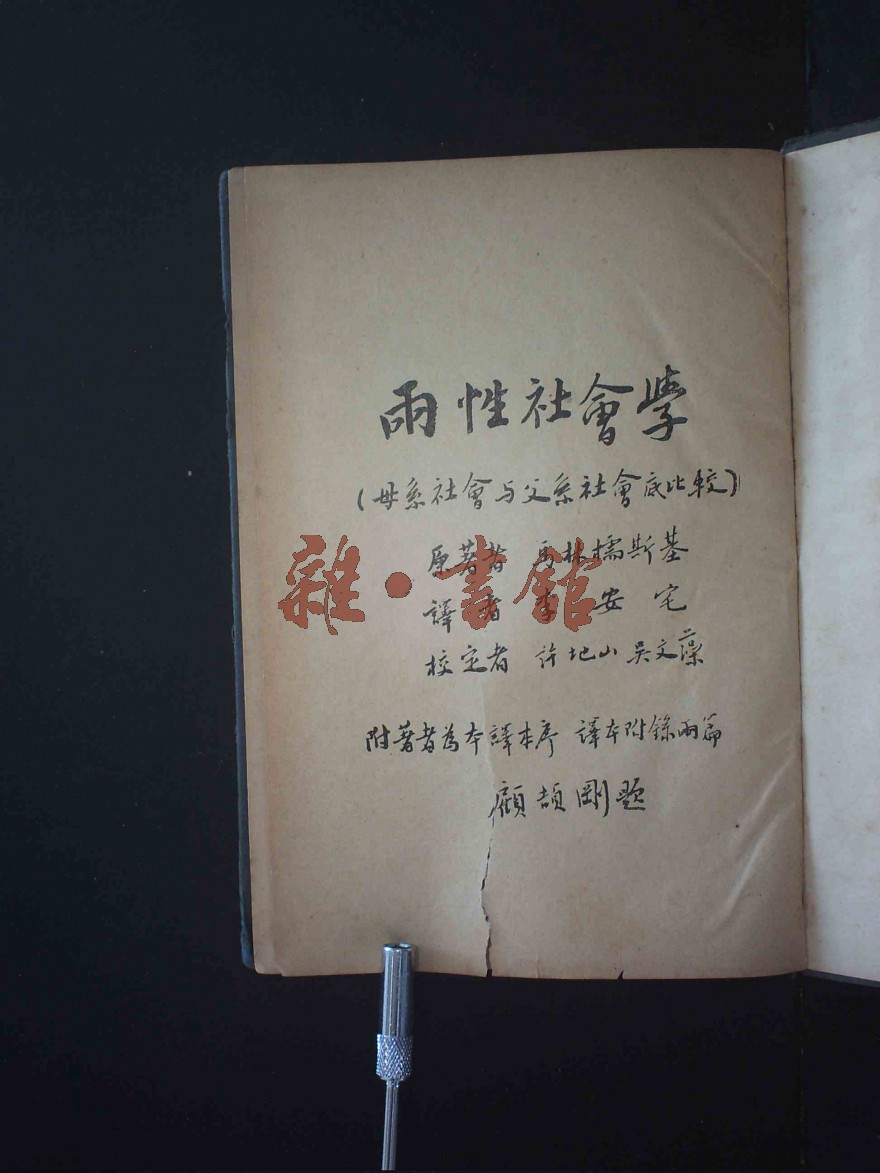 兩性社會學
(母系社會与父系社會底比較)
原著者 馬林檽斯基
譯者 李安宅
校定者 許地山 吳文藻
附著者為本譯本序 譯本附錄兩篇
顧頡剛題
雜·書館